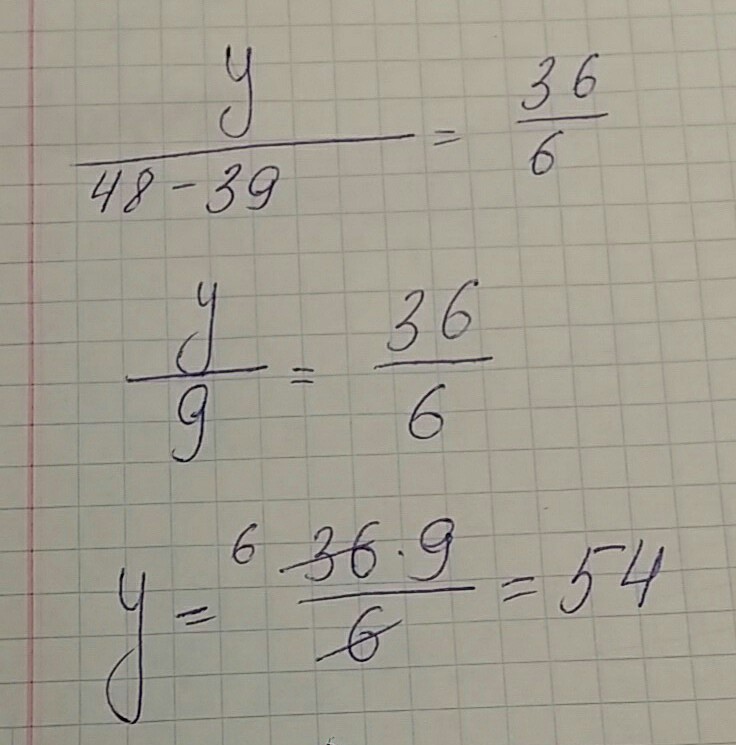 y/(48-39) = 36/6
y/9 = 36/6
y = 6 36·9/6 = 54